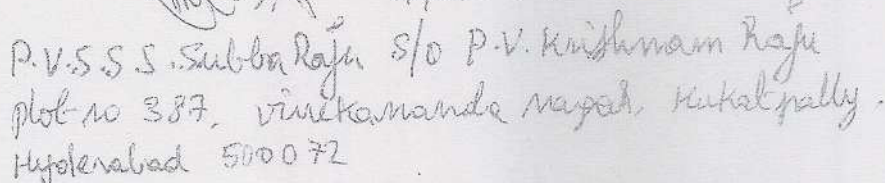 P.V.S.S.S. Subba Raju S/o P.V. Krishnam Raju
plot no 387, vivekananda nagar, Kukatpally.
Hyderabad 500072